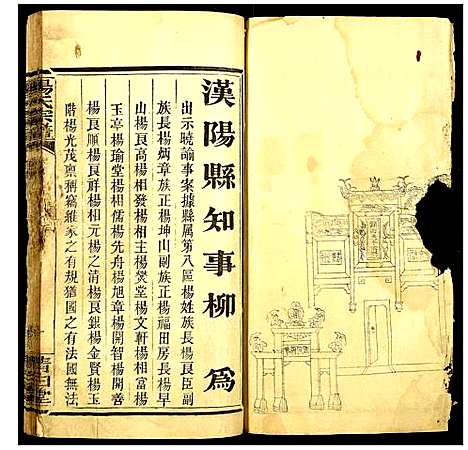 漢陽縣知事柳 為
出示曉諭事案據縣属第八區楊姓族長楊良臣副
族長楊炳章族正楊坤山副族正楊福田房長楊早
山楊良高楊相發楊相主楊熒堂楊文軒楊相富楊
玉亭楊瑜堂楊相儒楊先舟楊旭章楊開智楊開善
楊良順楊良祥楊相元楊之清楊良銀楊金賢楊玉
階楊光茂稟稱竊維家之有規猶國之有法國無法
楊氏宗譜
清白堂